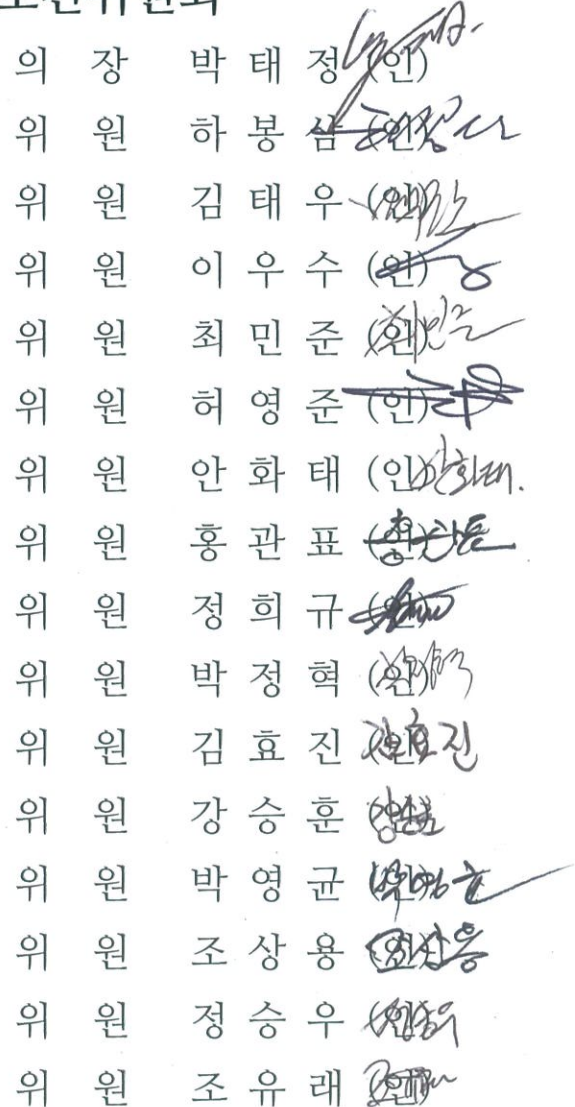 의 장 박 태 정 (인)
위 원 하 봉 삼 (인)
위 원 김 태 우 (인)
위 원 이 우 수 (인)
위 원 최 민 준 (인) 최민준
위 원 허 영 준 (인)
위 원 안 화 태 (인) 안화태.
위 원 홍 관 표 (인)
위 원 정 희 규 (인)
위 원 박 정 혁 (인)
위 원 김 효 진 (인) 김효진
위 원 강 승 훈 (인)
위 원 박 영 균 (인) 박영균
위 원 조 상 용 (인) 조상용
위 원 정 승 우 (인)
위 원 조 유 래 (인)